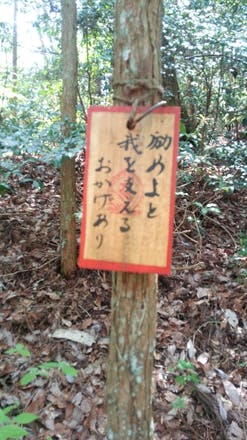 励め上と
我を支える
おかげあり